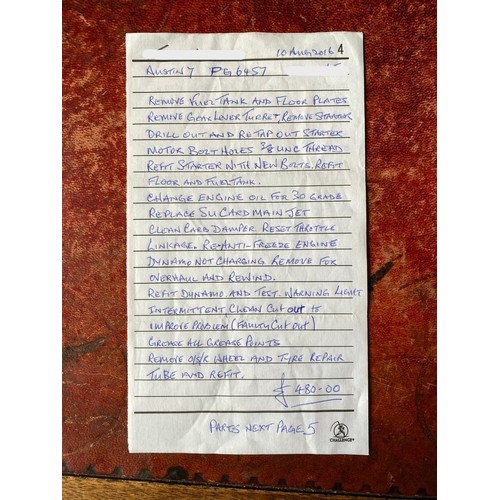 10 AUG 2016 4
AUSTIN 7 PG 6457
REMOVE FUEL TANK AND FLOOR PLATES
REMOVE GEAR LEVER TURRET, REMOVE STARTER
DRILL OUT AND RETAP OUT STARTER
MOTOR BOLT HOLES 3/8 UNC THREAD
REFIT STARTER WITH NEW BOLTS, REFIT
FLOOR AND FUEL TANK.
CHANGE ENGINE OIL FOR 30 GRADE
REPLACE SU CARB MAIN JET
CLEAN CARB DAMPER RESET THROTTLE
LINKAGE. RE-ANTI-FREEZE ENGINE
DYNAMO NOT CHARGING REMOVE FOR
OVERHAUL AND REWIND.
REFIT DYNAMO AND TEST. WARNING LIGHT
INTERMITTENT CLEAN CUT OUT TO
IMPROVE PROBLEM (FAULTY CUT OUT)
GREASE ALL GREASE POINTS
REMOVE O/S/R WHEEL AND TYRE REPAIR
TUBE AND REFIT.
£ 480-00
PARTS NEXT PAGE 5
CHALLENGE